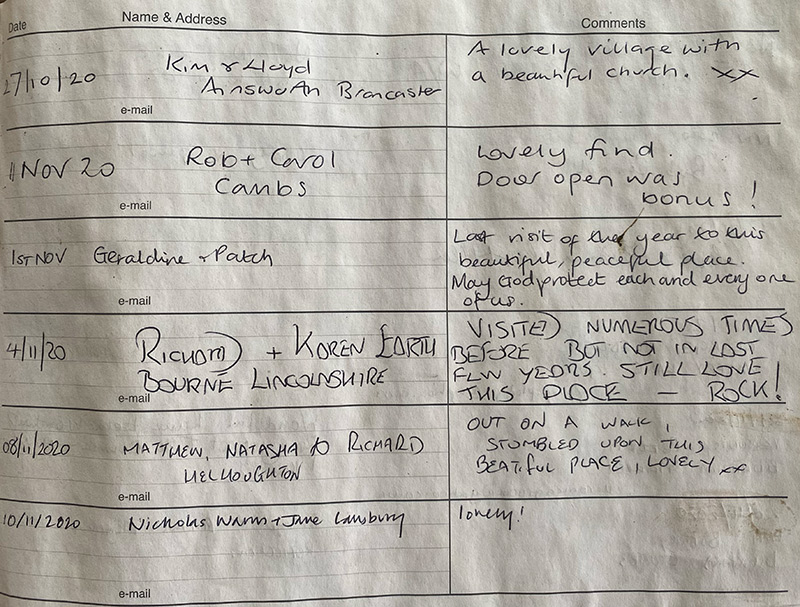 Date Name & Address Comments
27/10/20 Kim & Lloyd A lovely village with
Ainsworth Brancaster a beautiful church. xx
e-mail
1 NOV 20 Rob + Carol Lovely find.
Cambs Door open was
e-mail bonus!
1ST NOV Geraldine + Patch Last visit of the year to this
beautiful, peaceful place.
May God protect each and every one
e-mail of us.
4/11/20 RICHARD + KAREN EARTH VISITED NUMEROUS TIMES
BOURNE LINCOLNSHIRE BEFORE BUT NOT IN LAST
FEW YEARS. STILL LOVE
e-mail THIS PLACE — ROCK!
08/11/2020 MATTHEW, NATASHA & RICHARD OUT ON A WALK,
HELHOUGHTON STUMBLED UPON THIS
BEATIFUL PLACE, LOVELY xx
e-mail
10/11/2020 Nicholas Warns + Jane Lansbury lovely!
e-mail